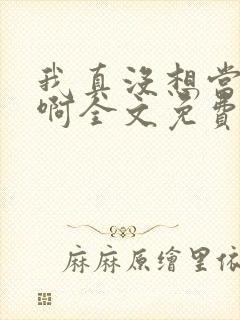 我真没想当
啊全文免费
麻麻原繪里依